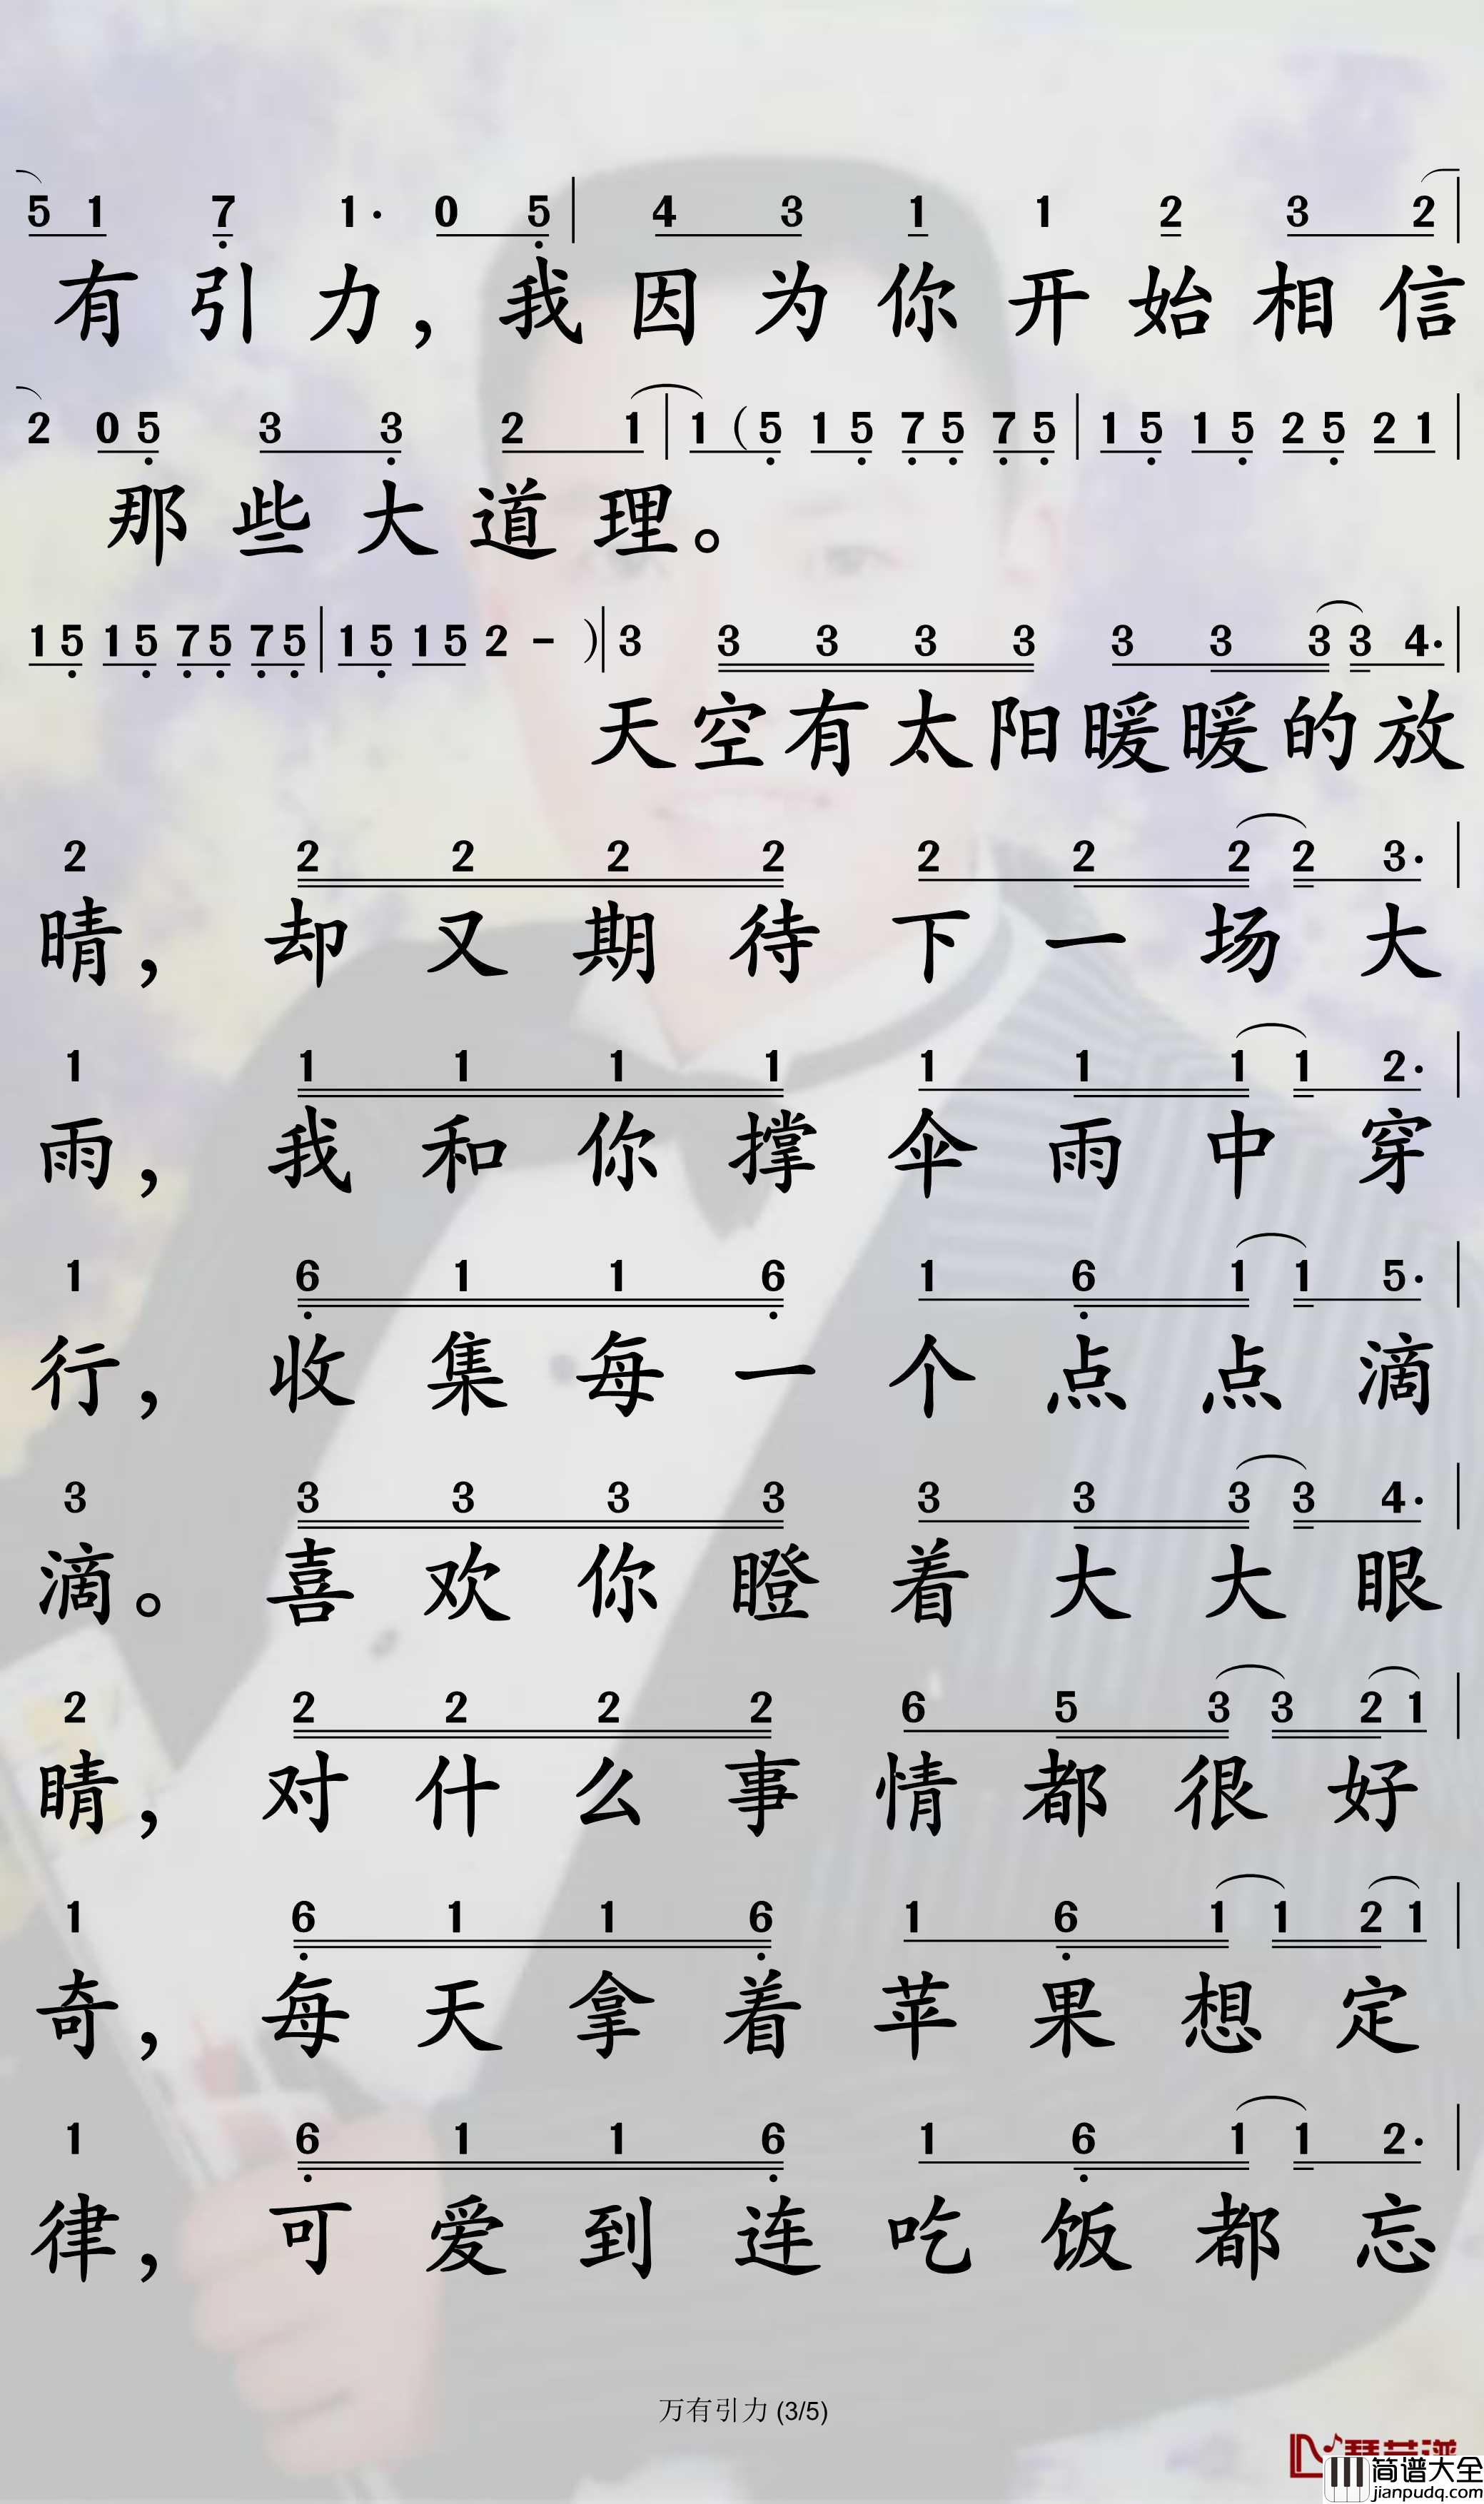 5 1 7 1· 0 5 | 4 3 1 1 2 3 2 |
有引力，我因为你开始相信
2 0 5 3 3 2 1 | 1 (5 1 5 7 5 7 5 | 1 5 1 5 2 5 2 1 |
那些大道理。
1 5 1 5 7 5 7 5 | 1 5 1 5 2 - ) | 3 3 3 3 3 3 3 3 3 4· |
天空有太阳暖暖的放
2 2 2 2 2 2 2 2 2 3· |
晴，却又期待下一场大
1 1 1 1 1 1 1 1 1 2· |
雨，我和你撑伞雨中穿
1 6 1 1 6 1 6 1 1 5· |
行，收集每一个点点滴
3 3 3 3 3 3 3 3 3 4· |
滴。喜欢你瞪着大大眼
2 2 2 2 2 6 5 3 3 2 1 |
睛，对什么事情都很好
1 6 1 1 6 1 6 1 1 2 1 |
奇，每天拿着苹果想定
1 6 1 1 6 1 6 1 1 2· |
律，可爱到连吃饭都忘
万有引力 (3/5)
简谱大全
jianpudq.com